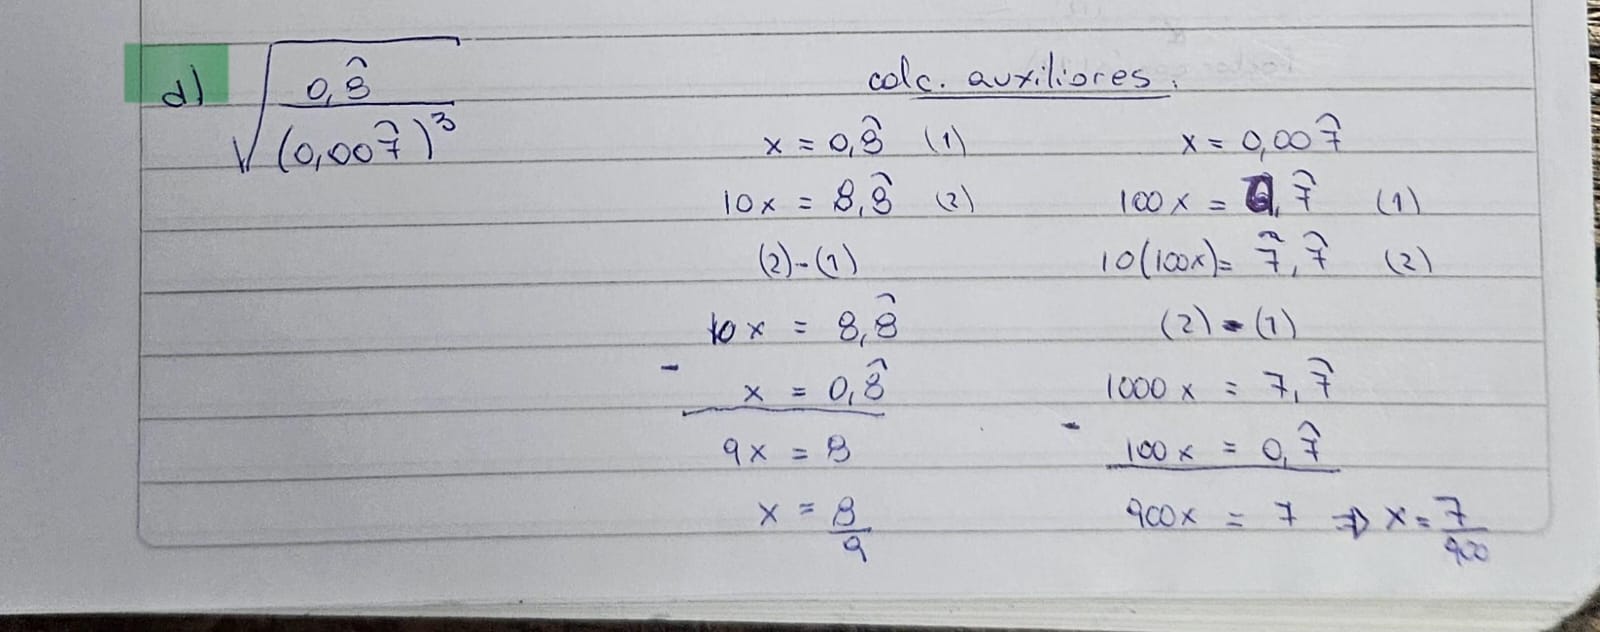 d) √(0,8̂ / (0,007̂)³)
calc. auxiliares.
x = 0,8̂ (1)
10x = 8,8̂ (2)
(2)-(1)
10x = 8,8̂
- x = 0,8̂
9x = 8
x = 8/9
x = 0,007̂
100x = 0,7̂ (1)
10(100x)= 7,7̂ (2)
(2)-(1)
1000x = 7,7̂
- 100x = 0,7̂
900x = 7 ⇒ x = 7/900